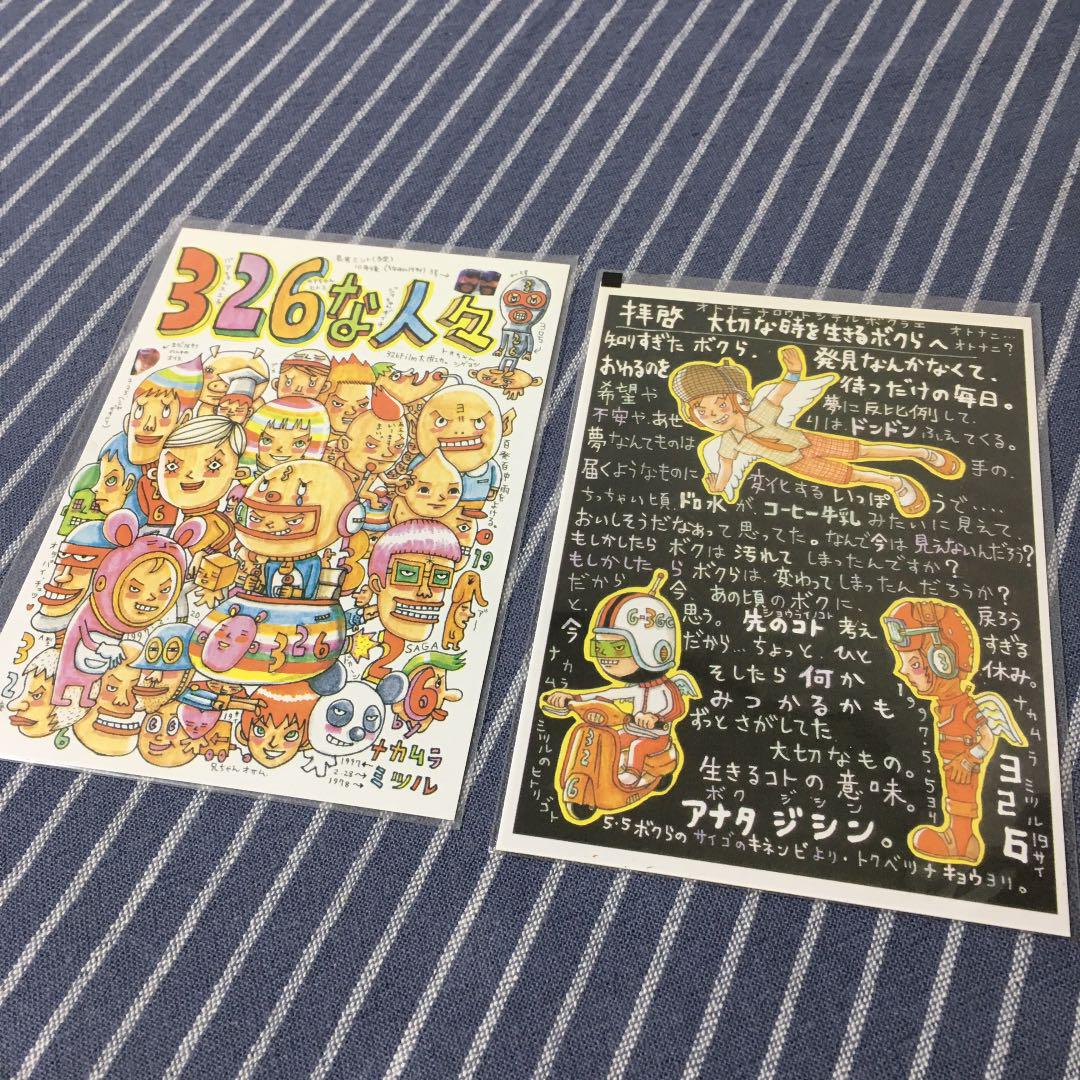 326な人々
トオちゃん
シゲヨシ
百発百中雨をよける。
19
SAGA
326
326
by
ナカムラ
ミツル
1997
2.28
1978
兄ちゃんオサム
拝啓 大切な時を生きるボクらへ
オトナニ?
知りすぎたボクら、
発見なんかなくて、
おわるのを
待つだけの毎日。
希望や
夢に反比例して、
不安や、あせ
りは ドンドン ふえてくる。
夢なんてものは
手の
届くようなものに
変化するいっぽうで....
ちっちゃい頃、ドロ水が コーヒー牛乳 みたいに見えて、
おいしそうだなあって思ってた。なんで今は、見えないんだろう?
もしかしたら ボクは 汚れて しまったんですか?
もしかしたら ボクらは、変わってしまったんだろうか?
だから 今、あの頃のボクに 戻ろう
と、思う。 先のコト 考え すぎる
今
だから.. ちょっと、ひと 休み。
そしたら 何か
みつかるかも
ずっとさがしてた
大切なもの。
生きるコトの意味。
ボク ジシン
アナタ ジシン。
5・5ボクらの サイゴのキネンビより・トクベツナキョウヨリ。
G-36
326
ナカムラミツルのヒトリゴト
ナカムラ ミツル 19サイ
326